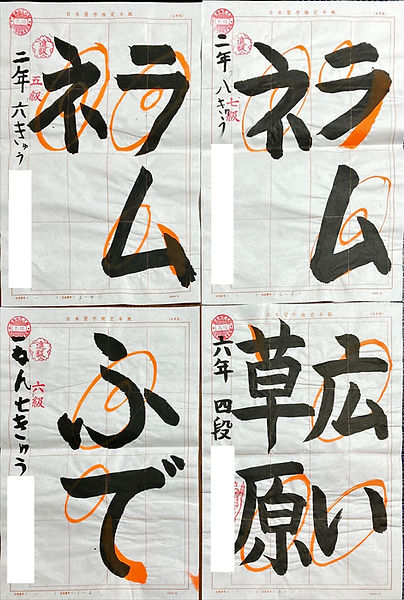 日本習字検定半紙
ラム
ネ
進級
五級
二年 六きゅう
日本習字検定半紙
ラム
ネ
進級
七級
二年 八きゅう
日本習字検定半紙
ふで
進級
六級
一ねん七きゅう
日本習字検定半紙
広い
草原
六年 四段